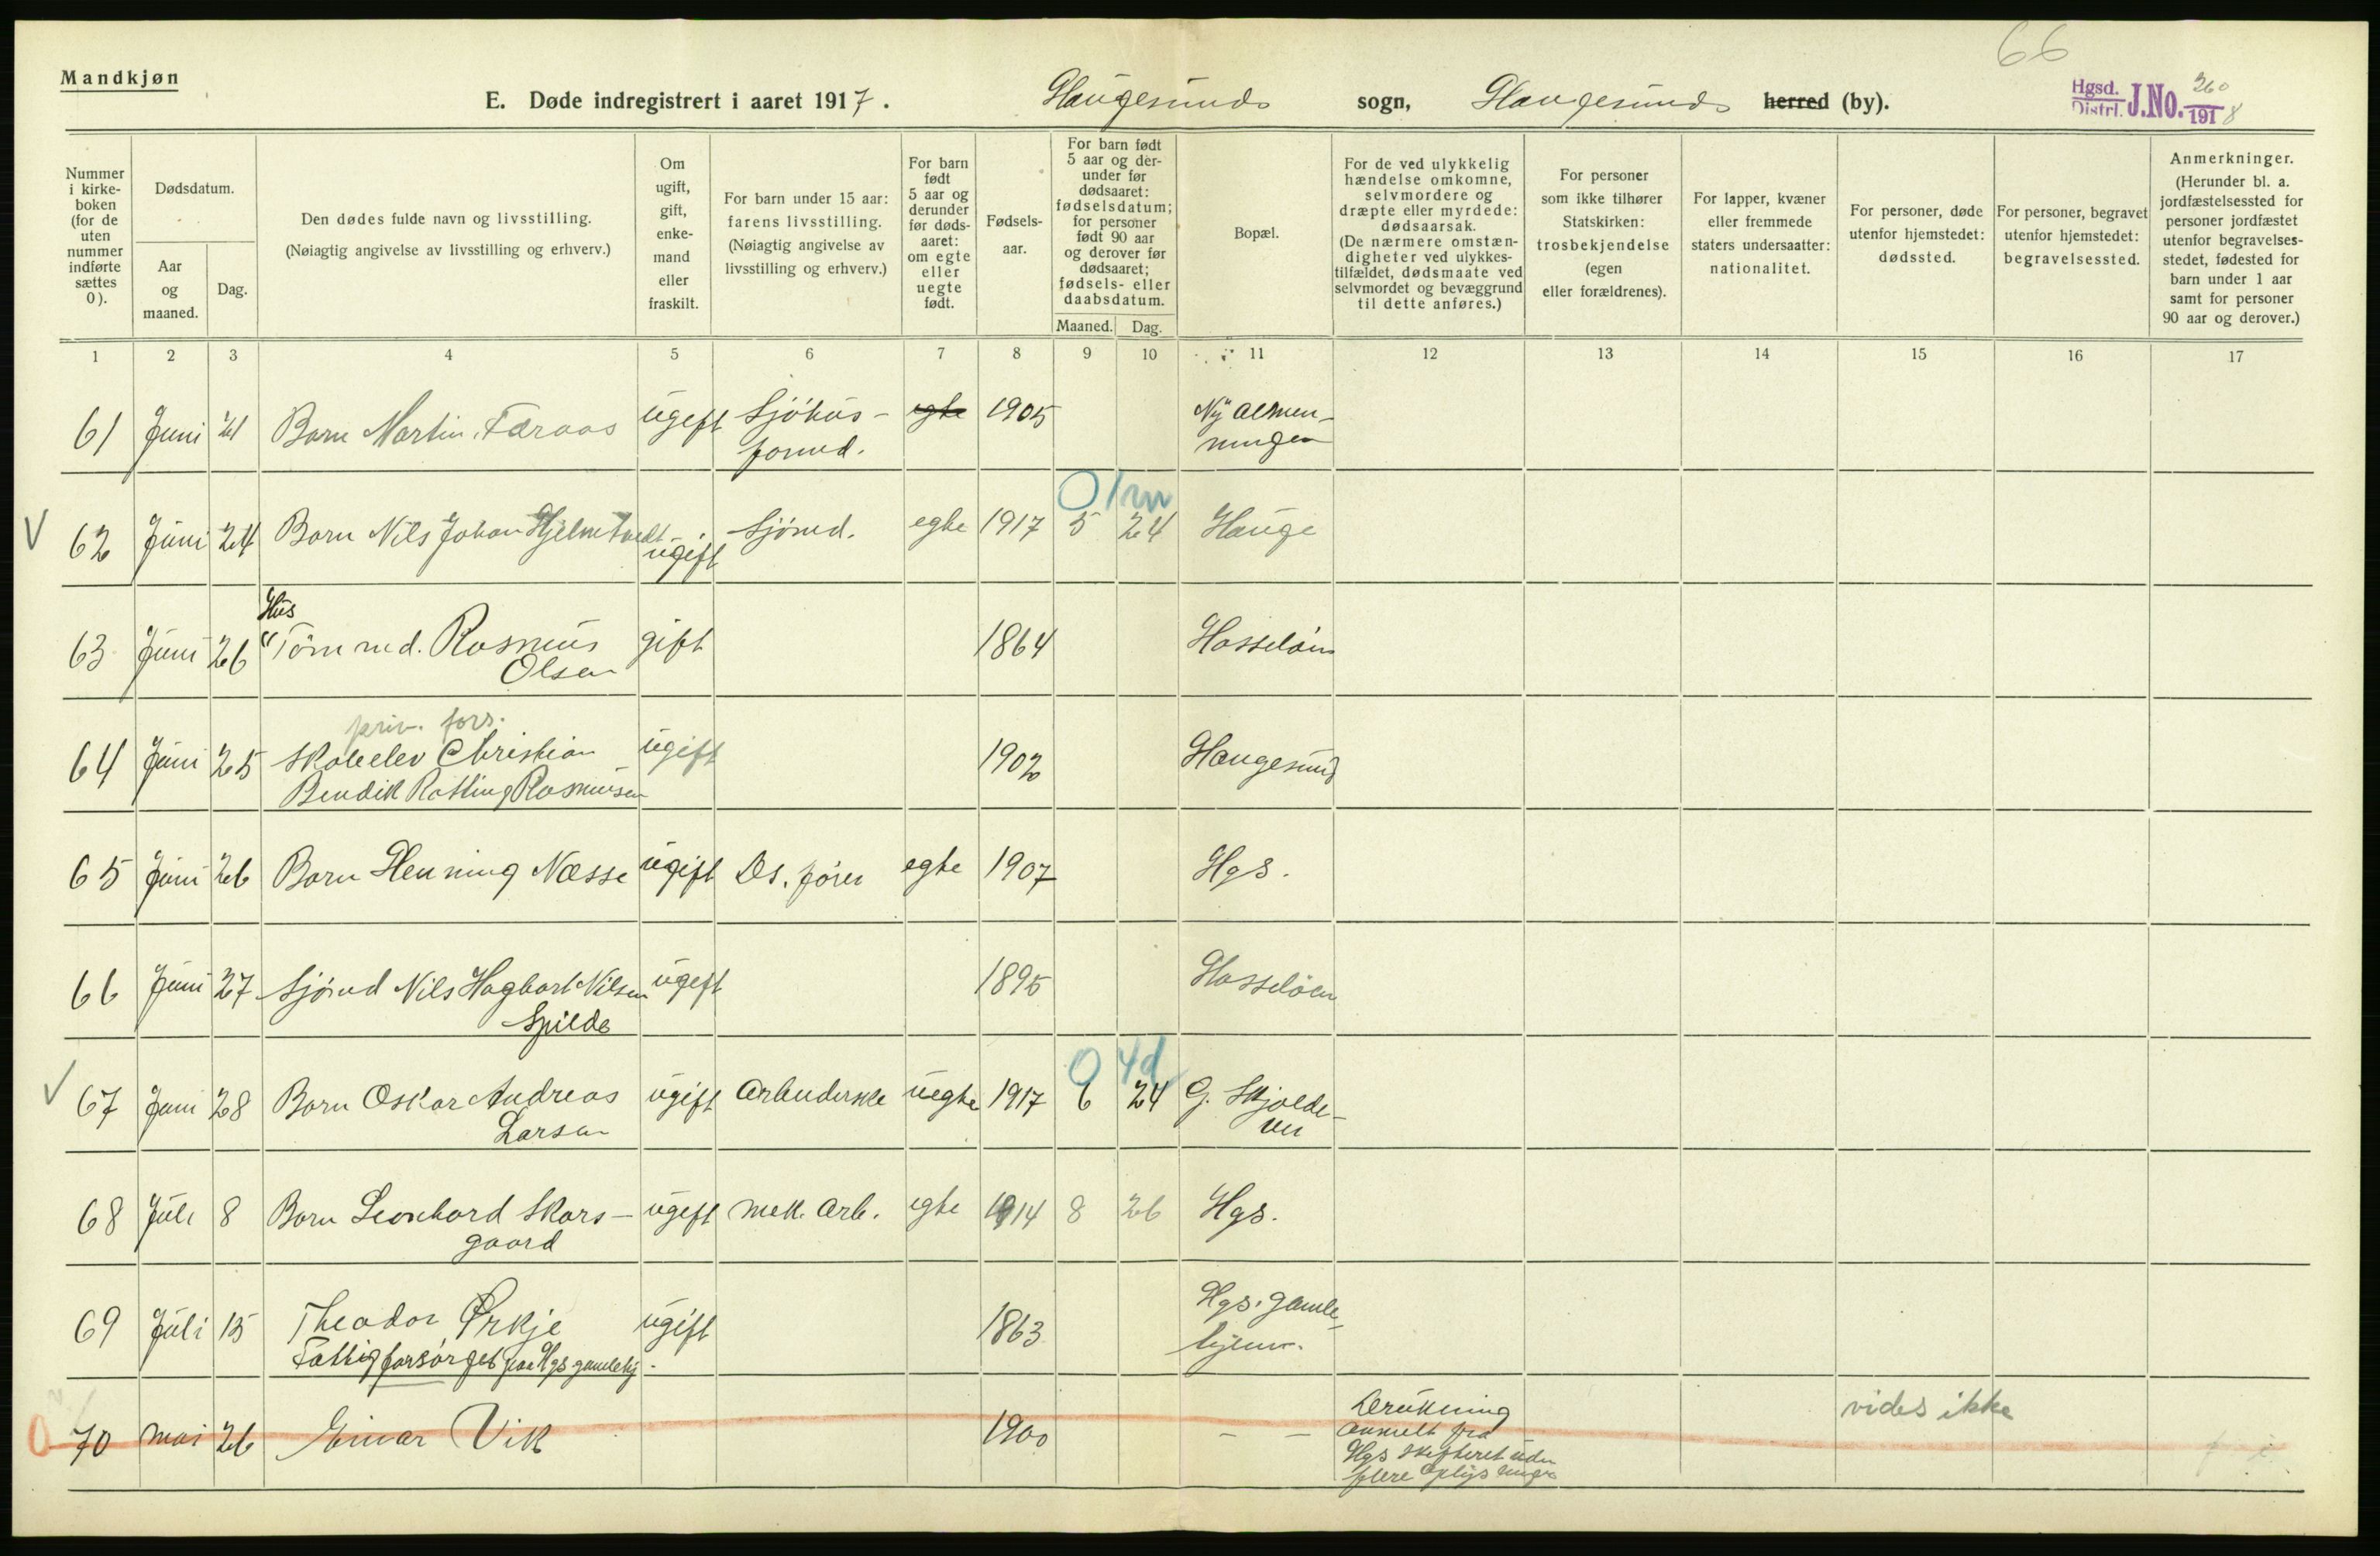 66
Mandkjøn
E. Døde indregistrert i aaret 1917. Haugesunds sogn, Haugesunds herred (by).
Hgsd. Distrl. J.No. 260 1918
Nummer i kirke-boken (for de uten nummer indførte sættes 0).
Dødsdatum.
Aar og maaned.
Dag.
Den dødes fulde navn og livsstilling.
(Nøiagtig angivelse av livsstilling og erhverv.)
Om ugift, gift, enke-mand eller fraskilt.
For barn under 15 aar: farens livsstilling.
(Nøiagtig angivelse av livsstilling og erhverv.)
For barn født 5 aar og derunder før døds-aaret: om egte eller uegte født.
Fødsels-aar.
For barn født 5 aar og der-under før dødsaaret: fødselsdatum; for personer født 90 aar og derover før dødsaaret; fødsels- eller daabsdatum.
Maaned. Dag.
Bopæl.
For de ved ulykkelig hændelse omkomne, selvmordere og dræpte eller myrdede: dødsaarsak.
(De nærmere omstæn-digheter ved ulykkes-tilfældet, dødsmaate ved selvmordet og bevæggrund til dette anføres.)
For personer som ikke tilhører Statskirken: trosbekjendelse (egen eller forældrenes).
For lapper, kvæner eller fremmede staters undersaatter: nationalitet.
For personer, døde utenfor hjemstedet: dødssted.
For personer, begravet utenfor hjemstedet: begravelsessted.
Anmerkninger.
(Herunder bl. a. jordfæstelsessted for personer jordfæstet utenfor begravelses-stedet, fødested for barn under 1 aar samt for personer 90 aar og derover.)
1 2 3 4 5 6 7 8 9 10 11 12 13 14 15 16 17
61 Juni 21 Barn Martin Færaas ugift Sjöhus- egte 1905 Ny almen-
formd. ningen
0 1m
62 Juni 24 Barn Nils Johan Hjelmtvedt ugift Sjömd. egte 1917 5 24 Hauge
Hus
63 Juni 26 "Tömmd. Rasmus gift 1864 Hasselöen
Olsen
priv. fors.
64 Juni 25 Skoleelev Christian ugift 1902 Haugesund
Bendik Rotting Rasmusen
65 Juni 26 Barn Henning Næsse ugift Ds. förer egte 1907 Hgs.
66 Juni 27 Sjömd Nils Hagbart Nilsen ugift 1895 Hasselöen
Spilde
0 4d
67 Juni 28 Barn Oskar Andreas ugift Arbeiderske uegte 1917 6 24 G. Skjolda-
Larsen vei
68 Juli 8 Barn Leonhard Skars- ugift mek. Arb. egte 1914 8 26 Hgs.
gaard
69 Juli 15 Theodor Ørkje ugift 1863 Hgs. gamle-
Fattigforsörget paa Hgs gamlehj. hjem.
0 70 mai 26 Einar Vik 1900 - - Drukning vides ikke
anmelt fra
Hgs skifteret uden
flere oplysninger